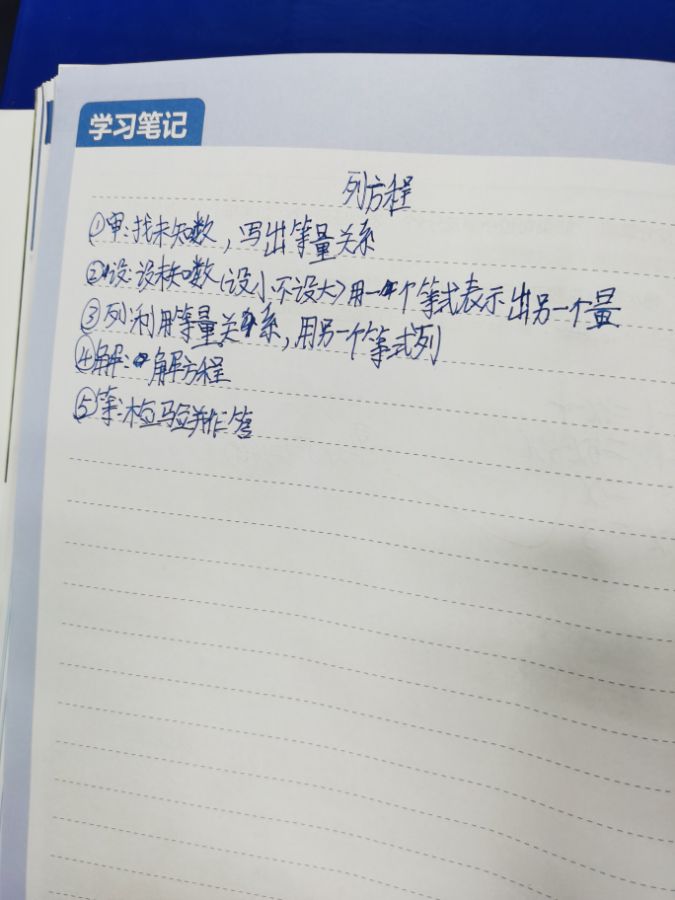 学习笔记
列方程
①审:找未知数,写出等量关系
②设:设未知数(设小不设大)用一个等式表示出另一个量
③列:利用等量关系,用另一个等式列
④解:解方程
⑤答:检验并作答